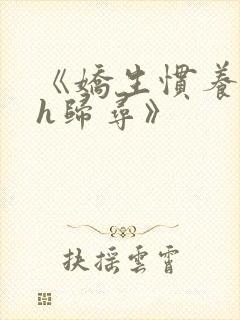 《嬌生慣養
h歸尋》
扶搖雲霄